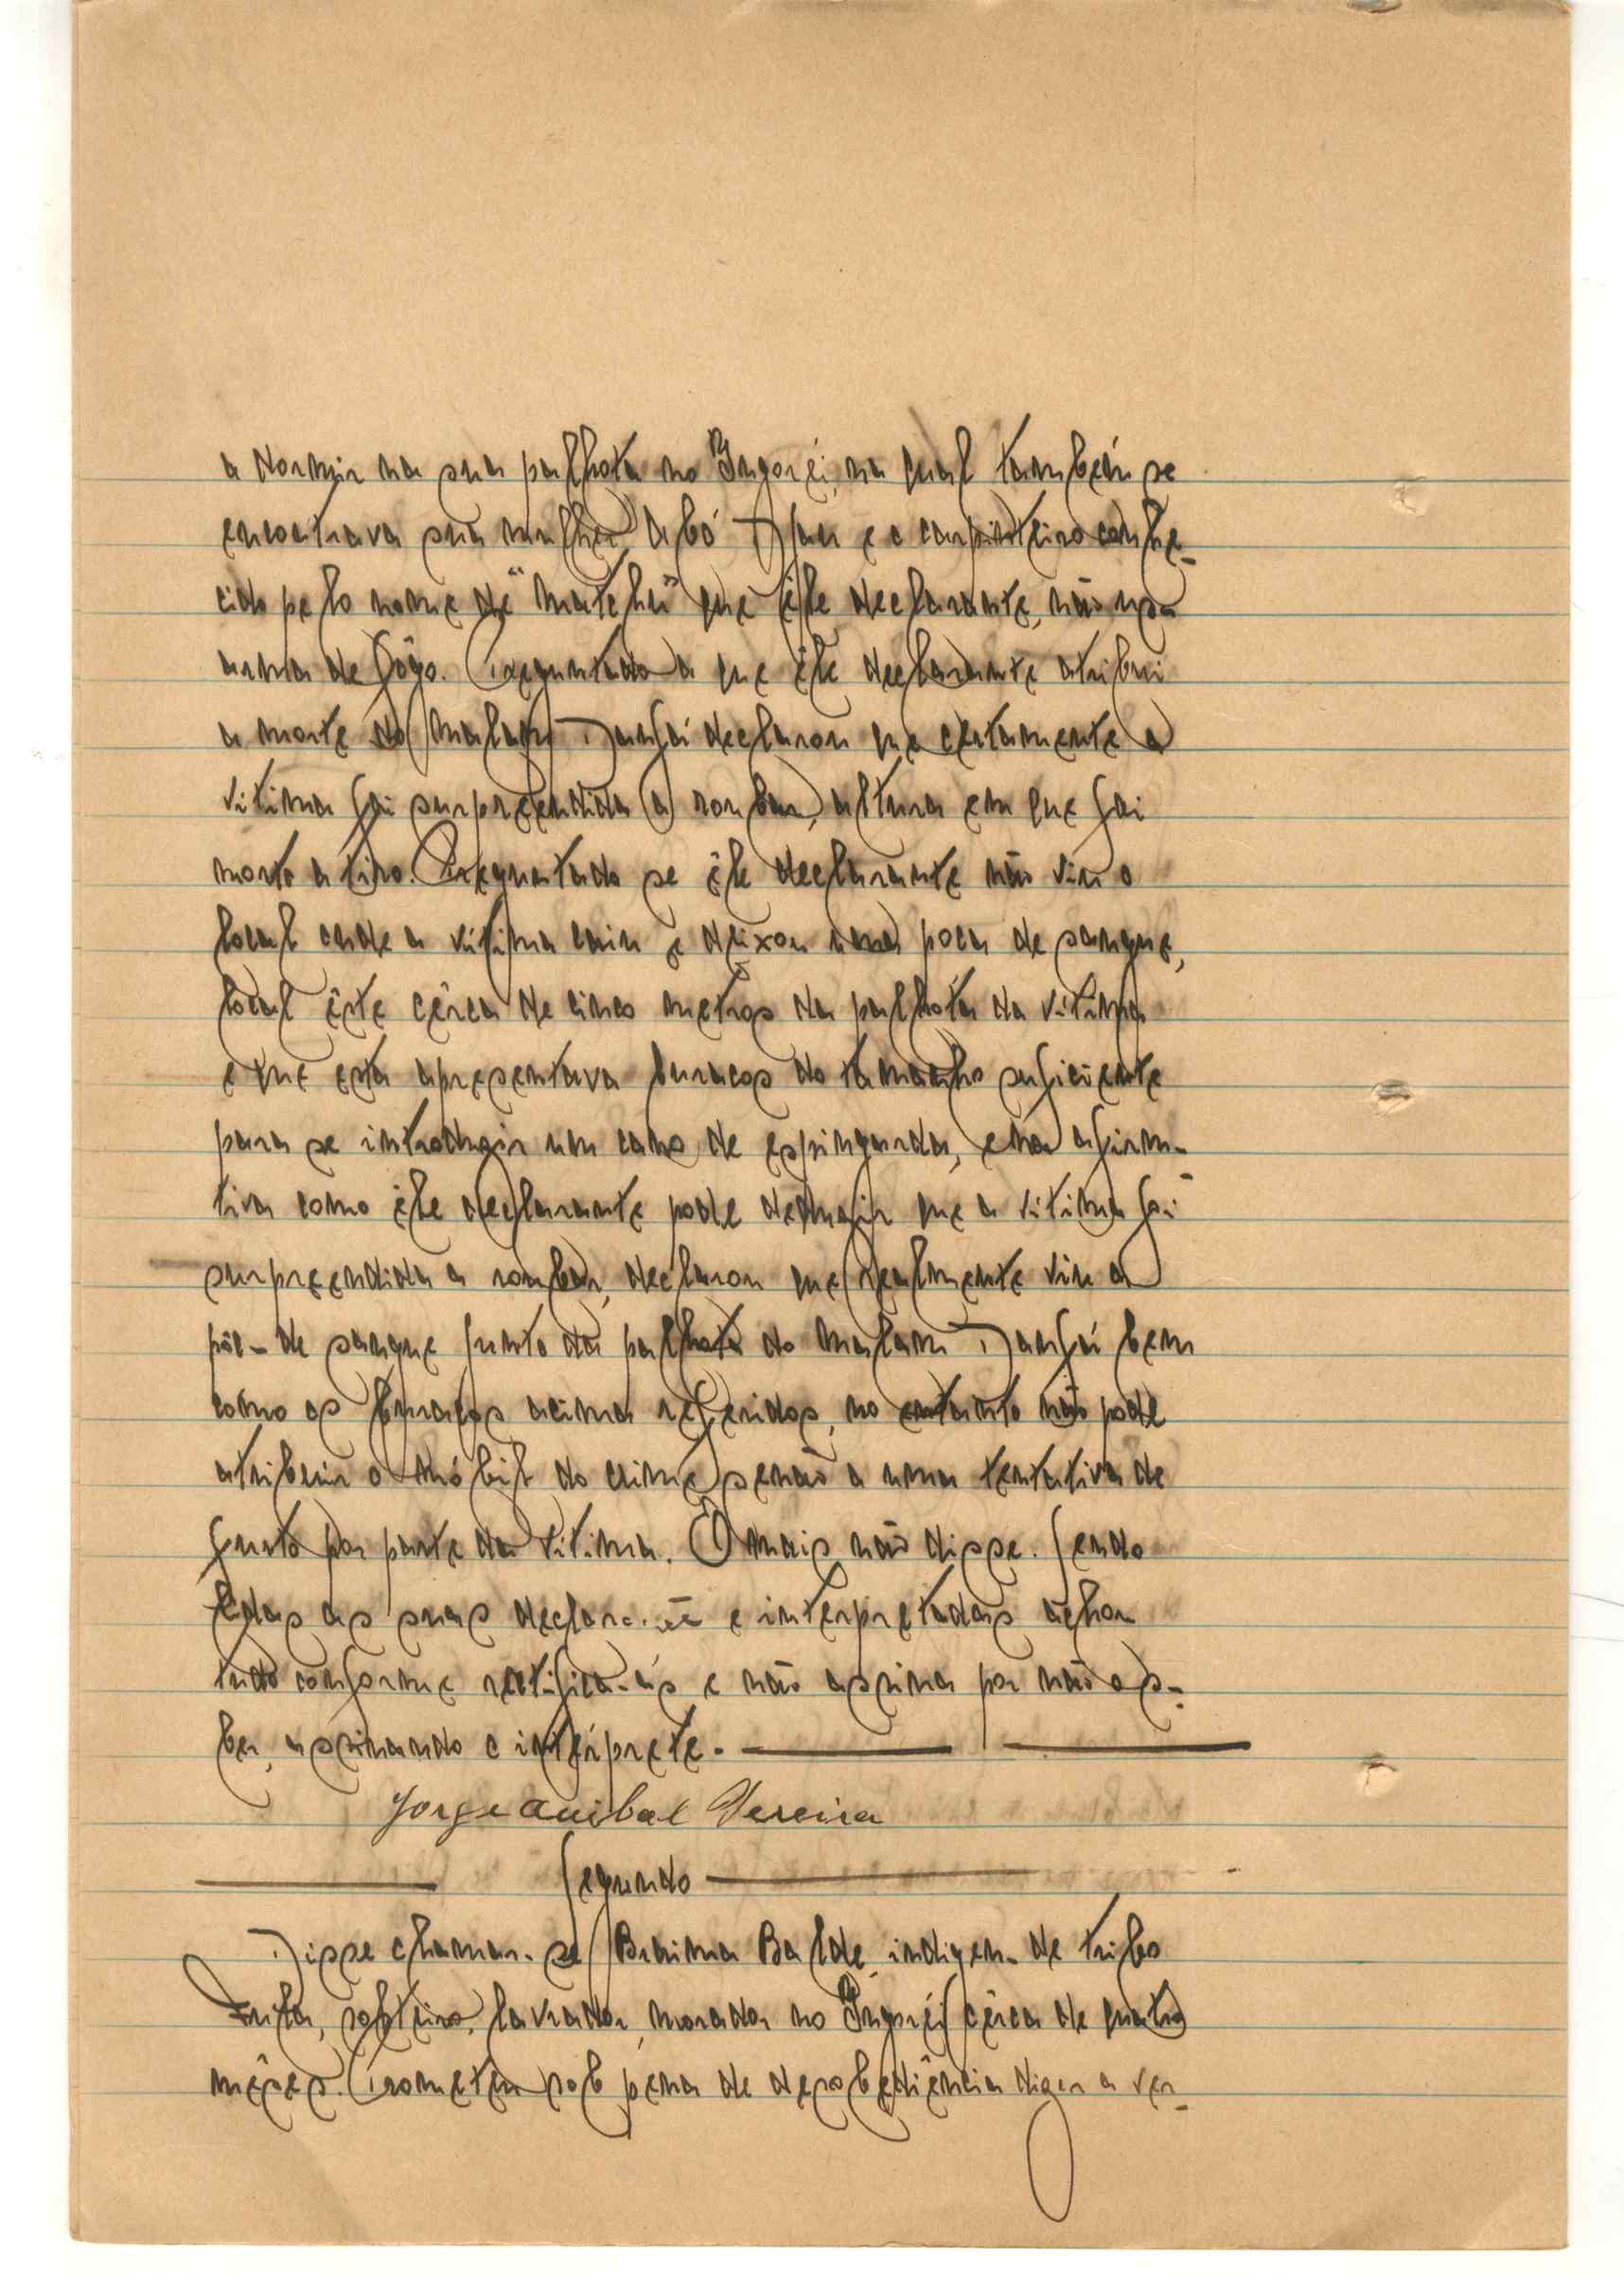 a dormir na sua palhota no Ingoréi, na qual também se
encontrava sua mulher Abó e o carpinteiro conhe-
cido pelo nome de "Matchu" que êle declarante, não usa
arma de fôgo. Preguntado a que êle declarante atribui
a morte do Malam Danfá declarou que certamente a
vitima foi surpreendida a roubar, altura em que foi
morto a tiro. Preguntado se êle declarante não viu o
local onde a vitima caiu e deixou uma poça de sangue,
local êste cêrca de cinco metros da palhota da vitima
e que esta apresentava buracos do tamanho suficiente
para se introduzir um cano de espingarda, em afirma-
tiva como êle declarante pode deduzir que a vitima foi
surpreendida a roubar, declarou que realmente viu a
de sangue junto da palhota do Malam Danfá bem
como os buracos acima referidos, no entanto não pode
atribuir o móbil do crime senão a uma tentativa de
furto por parte da vitima. E mais não disse. Sendo
lidas as suas e interpretadas achou
tudo conforme rectifica-as e não assina por não o sa-
ber, assinando o intérprete.
Jorge Anibal Pereira
Segundo
Disse chamar-se Braima Balde, indigena de tribo
Fula, solteiro, lavrador, morador no Ingoréi cêrca de quatro
mêses. Prometeu sob pena de desobediência dizer a ver-